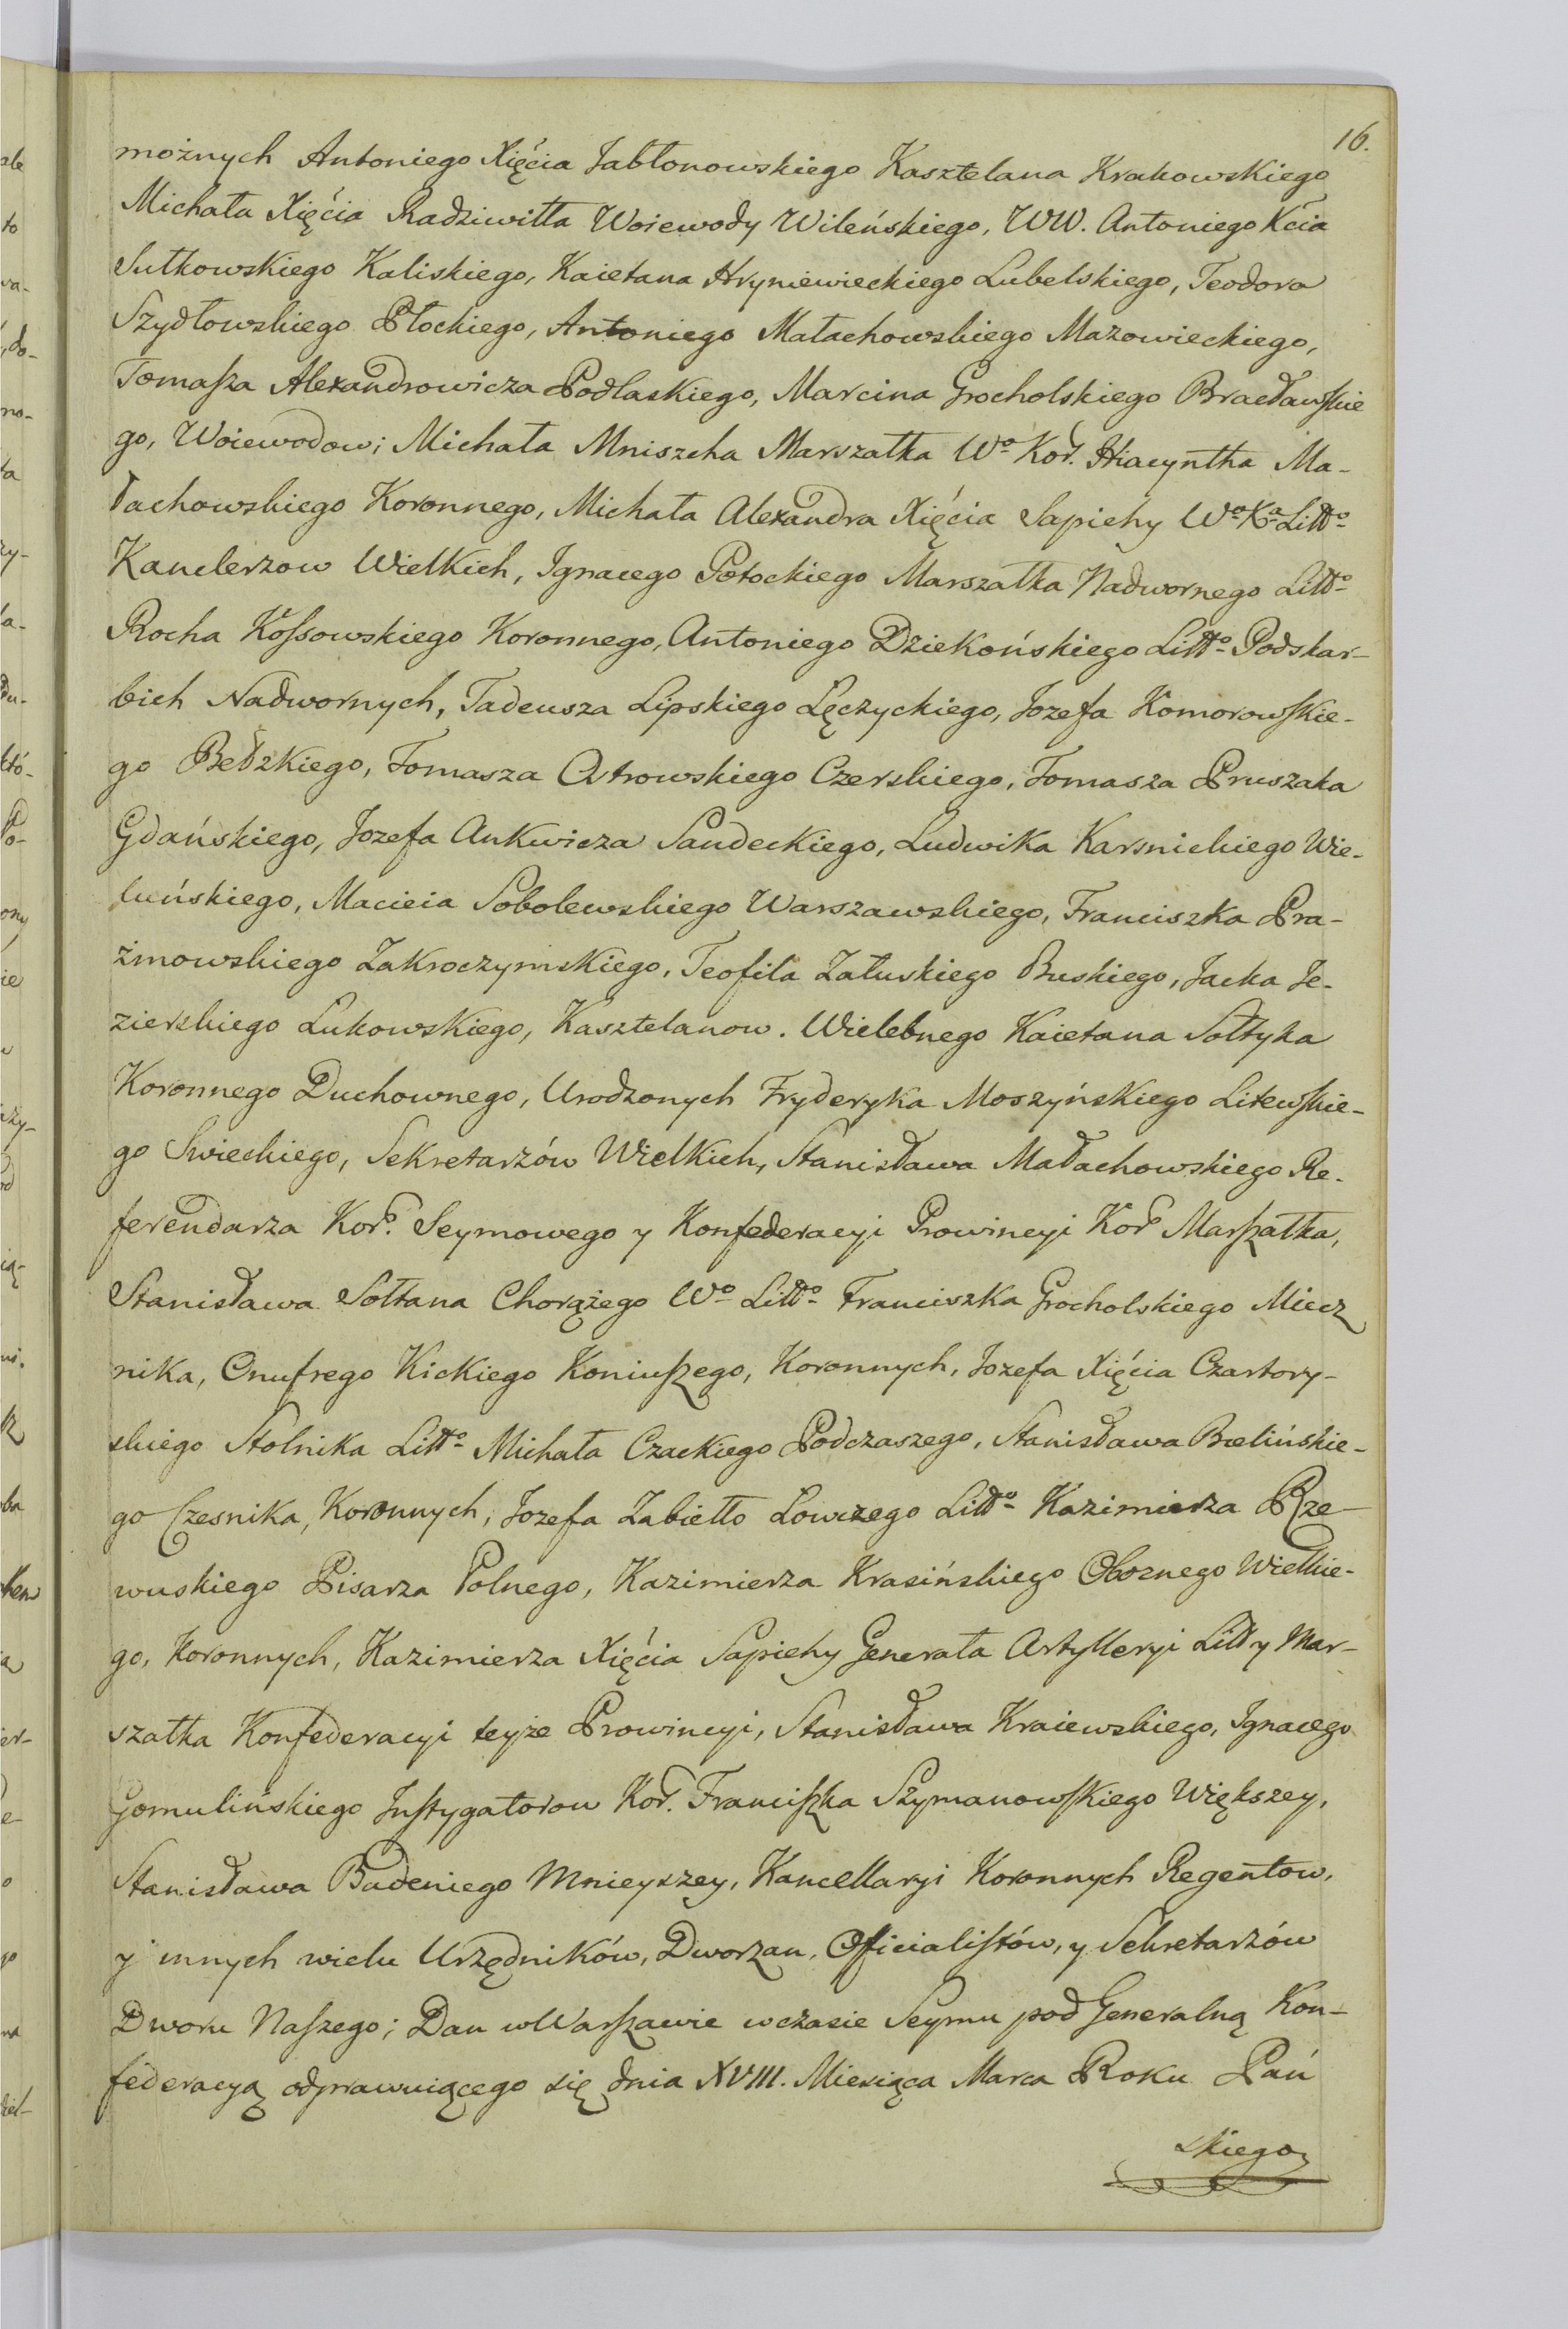 16.
możnych Antoniego Xięcia Jabłonowskiego Kasztelana Krakowskiego
Michała Xięcia Radziwiłła Woiewody Wileńskiego, WW. Antoniego Xcia
Sułkowskiego Kaliskiego, Kaietana Hryniewieckiego Lubelskiego, Teodora
Szydłowskiego Płockiego, Antoniego Małachowskiego Mazowieckiego,
Tomaſza Alexandrowicza Podlaskiego, Marcina Grocholskiego Bracławſkie
go, Woiewodow; Michała Mniszcha Marszałka Wo Kor. Hiacyntha Ma-
łachowskiego Koronnego, Michała Alexandra Xięcia Sapiehy Wo Xa Litto
Kanclerzow Wielkich, Ignacego Potockiego Marszałka Nadwornego Litto
Rocha Koſsowskiego Koronnego, Antoniego Dziekońskiego Litto Podskar-
bich Nadwornych, Tadeusza Lipskiego Lęczyckiego, Jozefa Komorowſkie-
go Bełzkiego, Tomasza Ostrowskiego Czerskiego, Tomasza Pruszaka
Gdańskiego, Jozefa Ankwicza Sandeckiego, Ludwika Karsnickiego Wie-
luńskiego, Macieia Sobolewskiego Warszawskiego, Franciszka Pra-
żmowskiego Zakroczymskiego, Teofila Załuskiego Buskiego, Jacka Je-
zierskiego Lukowskiego, Kasztelanow. Wielebnego Kaietana Sołtyka
Koronnego Duchownego, Urodzonych Fryderyka Moszyńskiego Litewſkie-
go Swieckiego, Sekretarzów Wielkich, Stanisława Małachowskiego Re-
ferendarza Koro. Seymowego y Konfederacyi Prowincyi Koro Marſzałka,
Stanisława Sołtana Chorążego Wo Litto Franciszka Grocholskiego Miecz
nika, Onufrego Kickiego Koniuſzego, Koronnych, Jozefa Xięcia Czartory-
skiego Stolnika Litto Michała Czackiego Podczaszego, Stanisława Bielińskie-
go Czesnika, Koronnych, Jozefa Zabiełło Łowczego Litto Kazimierza Rze-
wuskiego Pisarza Polnego, Kazimierza Krasińskiego Oboznego Wielkie-
go, Koronnych, Kazimierza Xięcia Sapiehy Generała Artylleryi Litt y Mar-
szałka Konfederacyi teyże Prowincyi, Stanisława Kraiewskiego, Ignacego
Gomulińskiego Inſtygatorow Kor. Franciſzka Szymanowſkiego Większey,
Stanisława Badeniego Mnieyszey, Kancellaryi Koronnych Regentow,
y innych wielu Urzędników, Dworzan, Officialiſtów, y Sekretarzów
Dworu Naſzego; Dan w Warſzawie w czasie Seymu pod Generalną Kon-
federacyą odprawuiącego się dnia XVIII. Miesiąca Marca Roku Pań
skiego